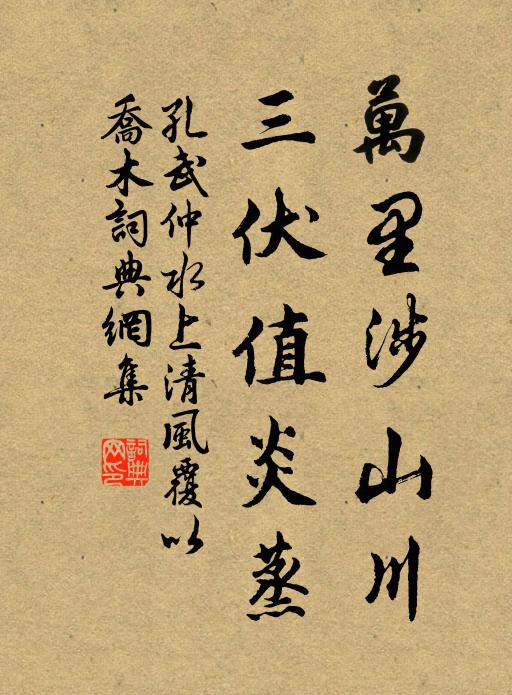 萬里涉山川
三伏值炎蒸
孔武仲水上清風覆以
喬木詞典網集
詞典
網印